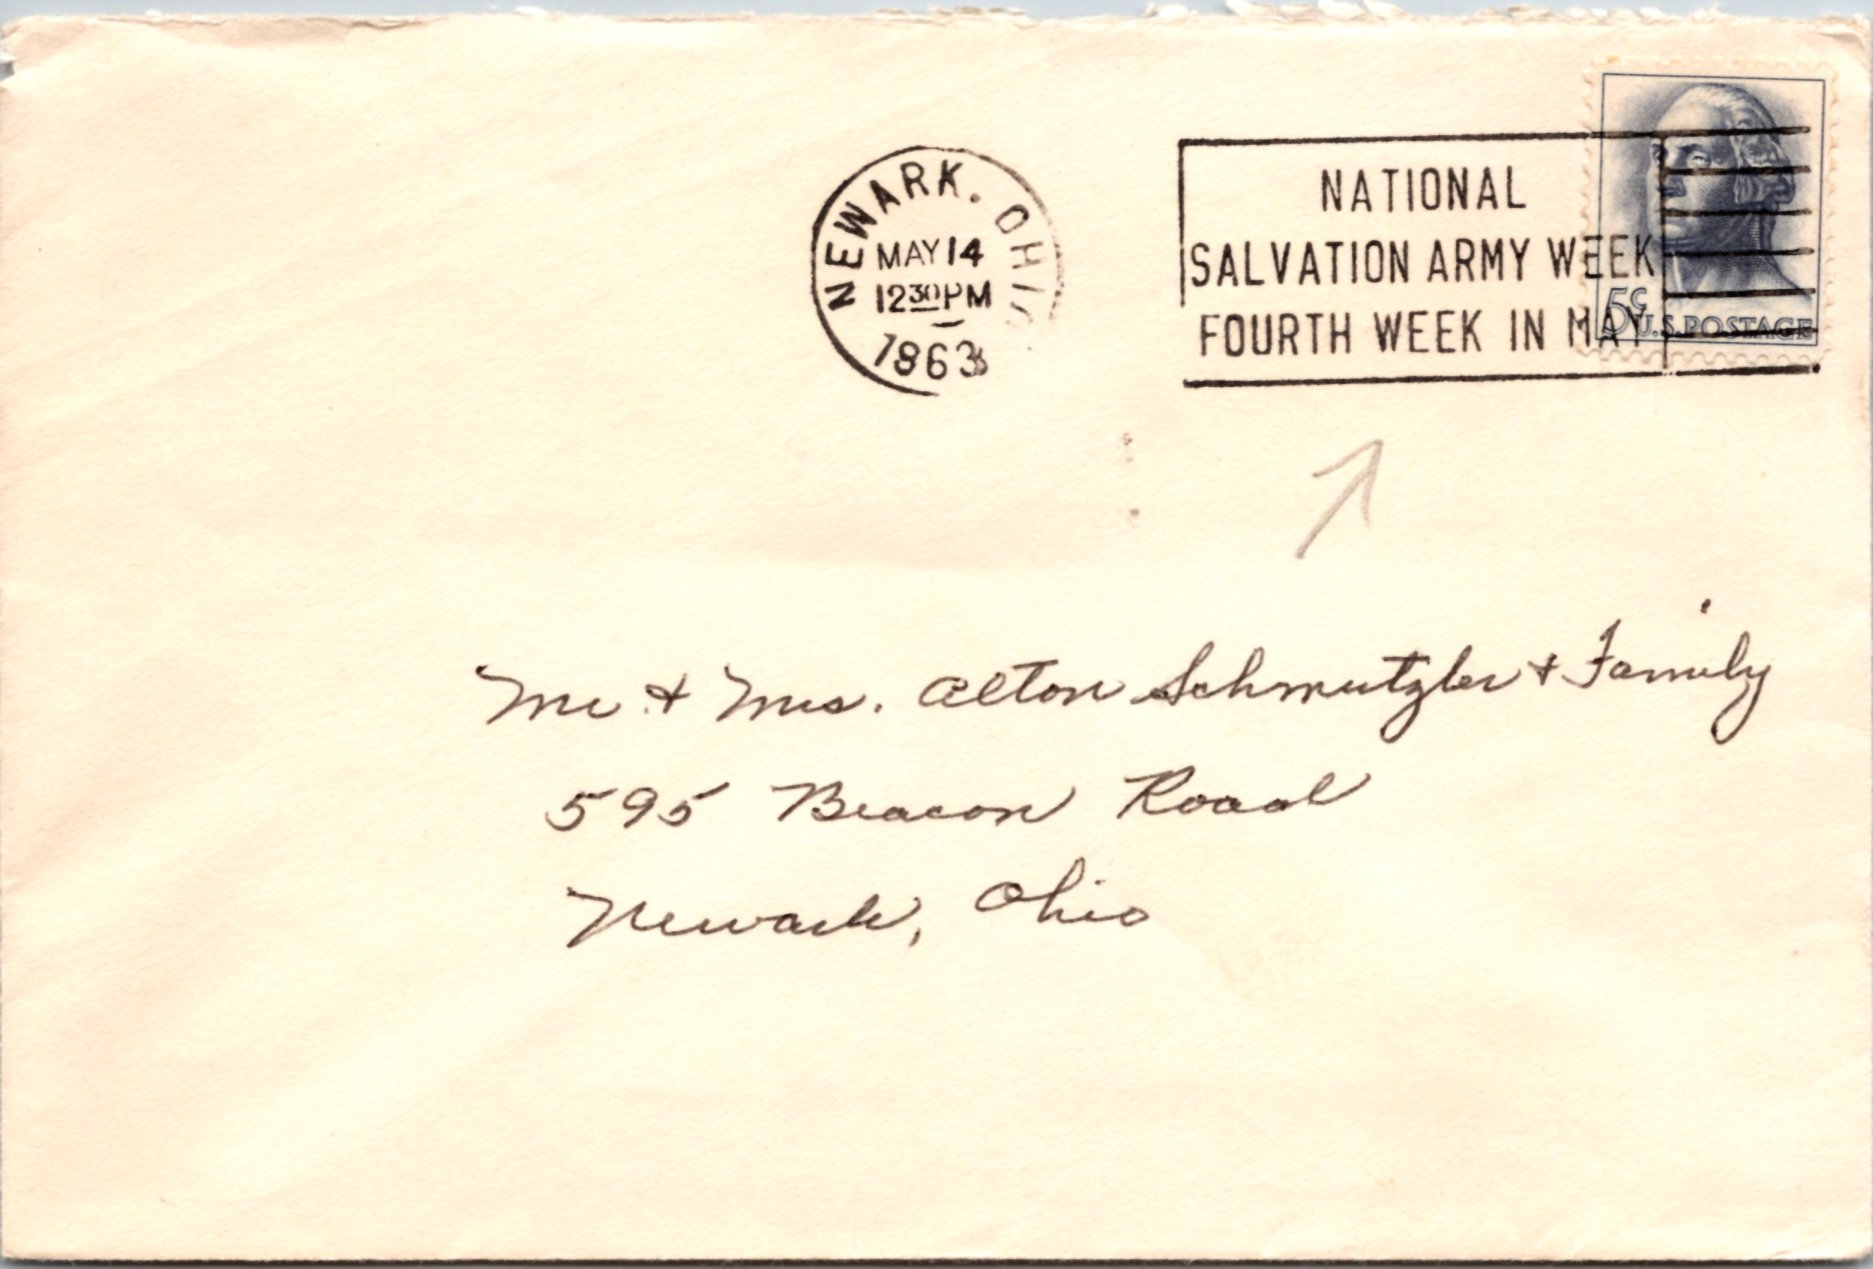 NEWARK. OHIO
MAY 14
12 30 PM
1863
NATIONAL
SALVATION ARMY WEEK
FOURTH WEEK IN MAY
5¢ U.S. POSTAGE
Mr. & Mrs. Alton Schmutzler & Family
595 Beacon Road
Newark, Ohio